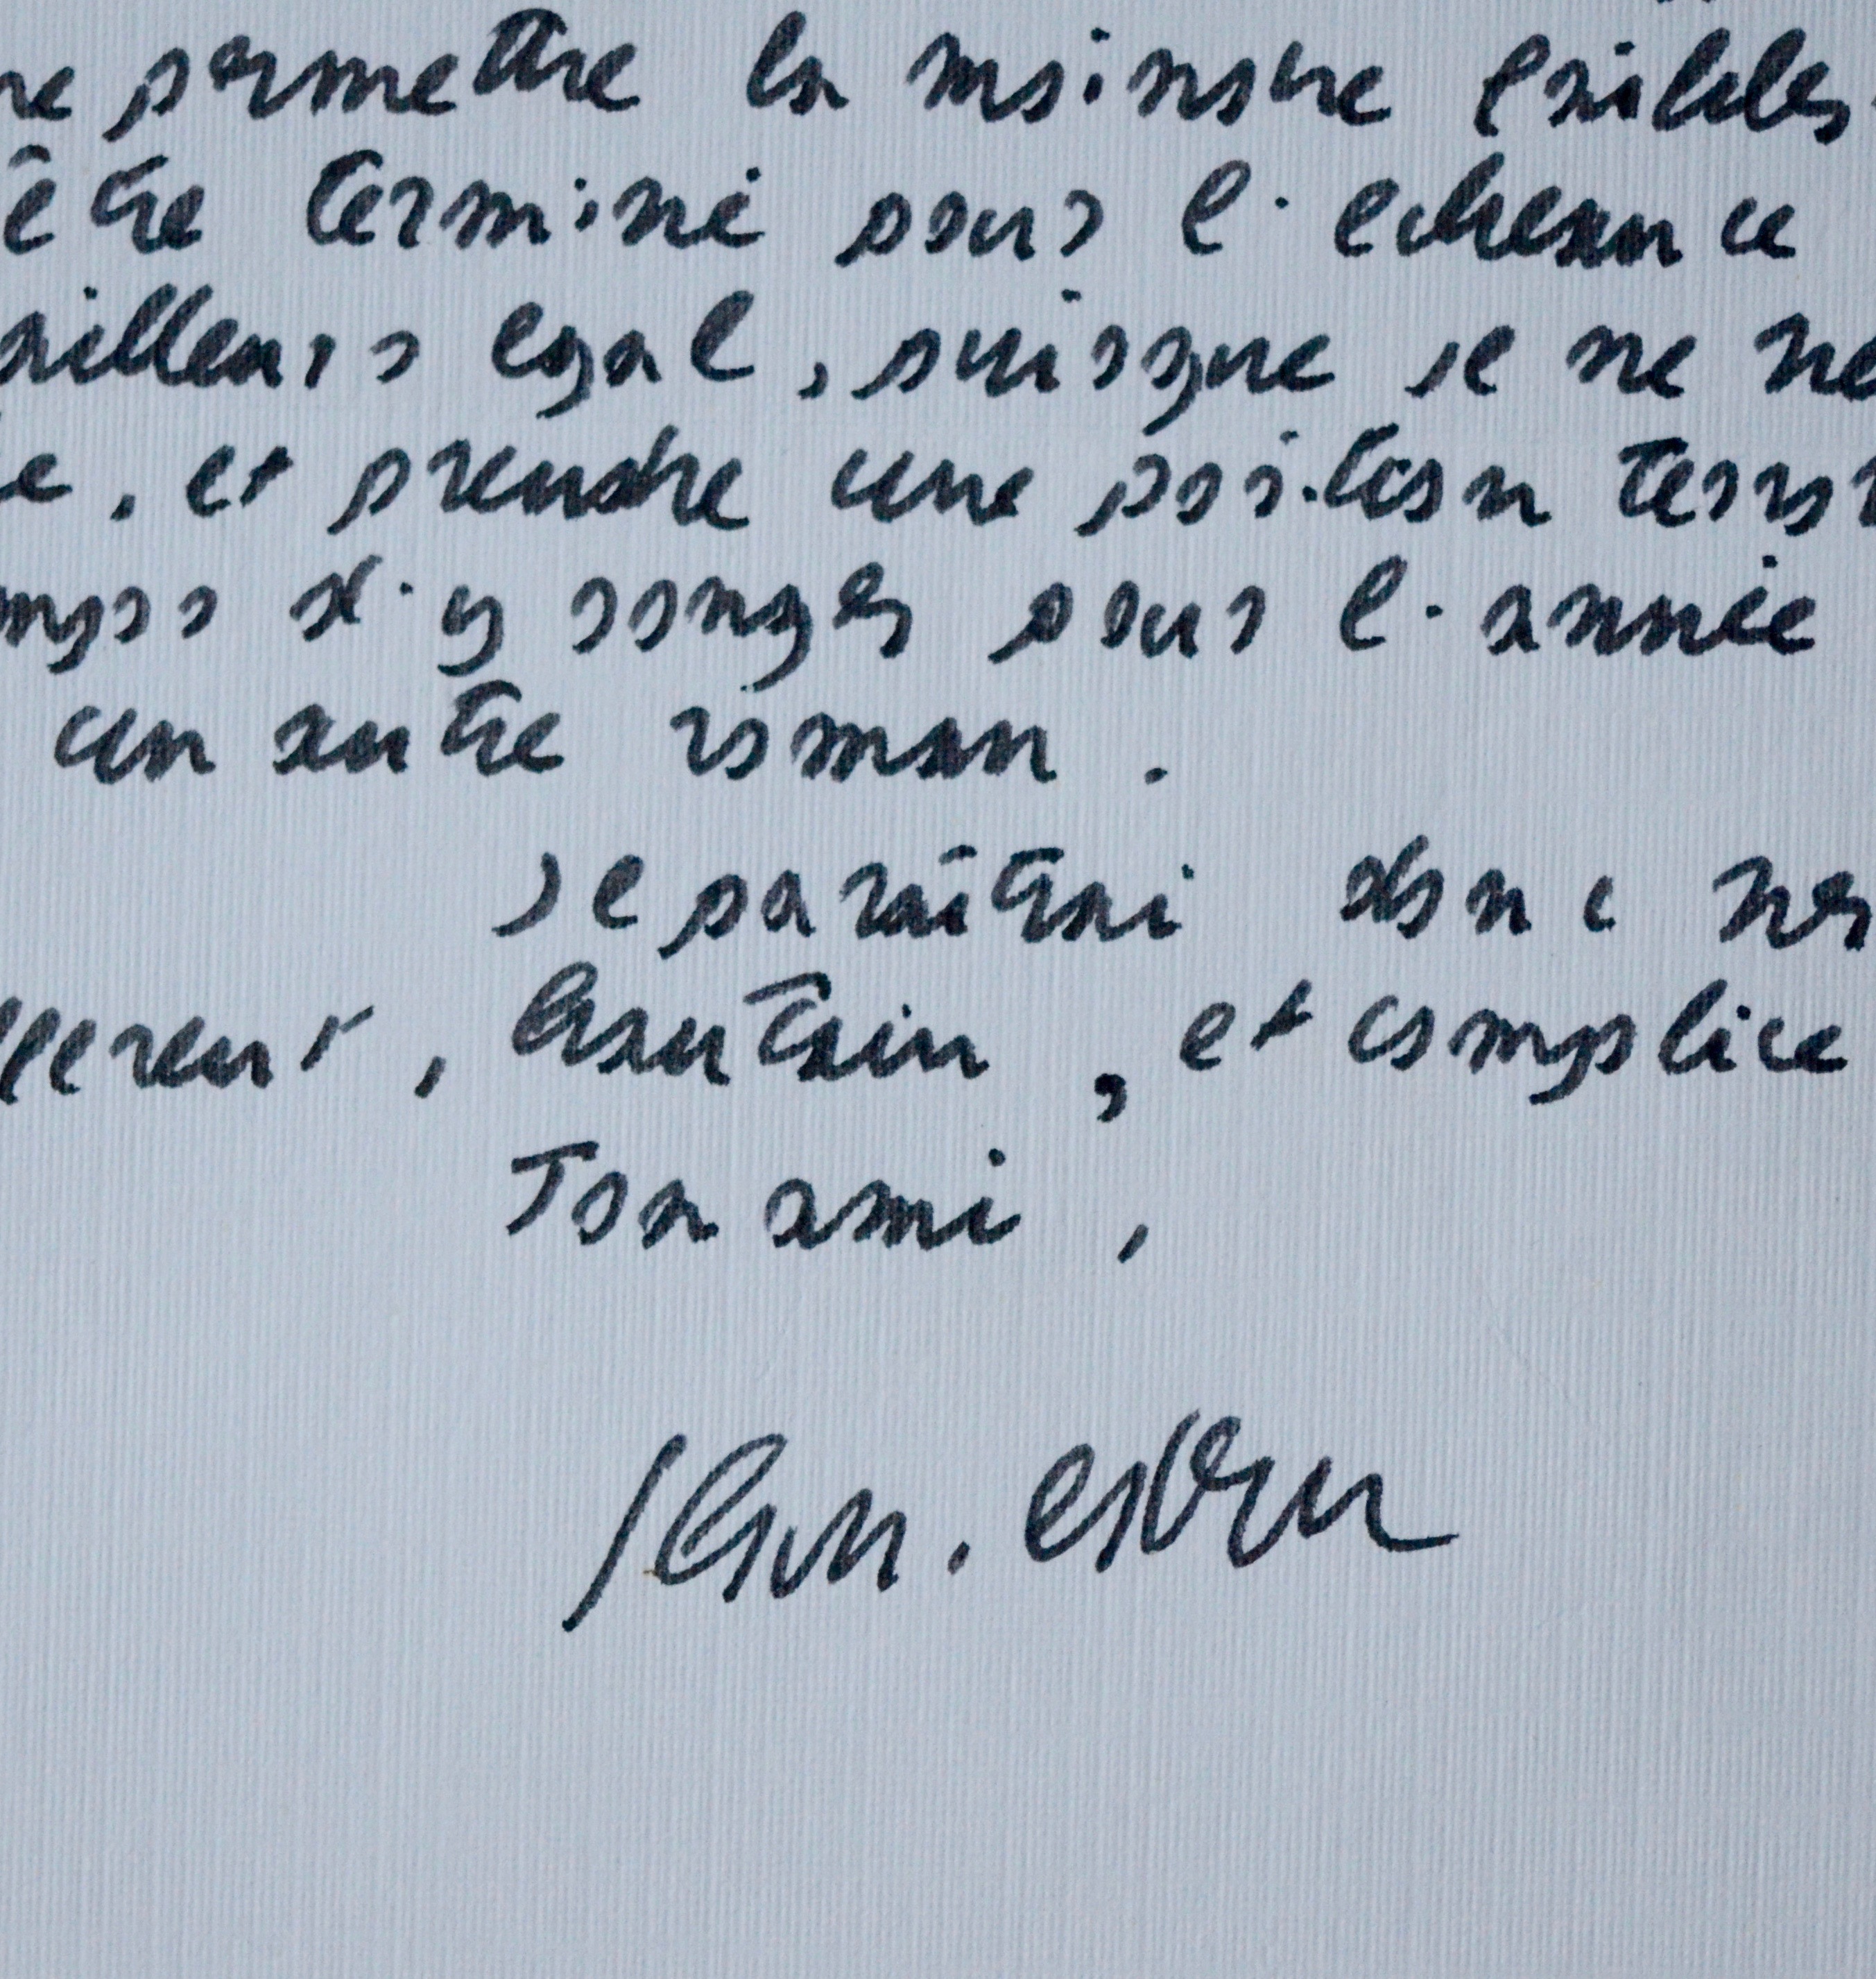 permettre la moindre faibles
être terminé pour l'echeance
ailleurs egal, puisque je ne
et prendre une position
d'y songer pour l'année
un autre roman.
Je paraîtrai donc
hautain, et complice
Ton ami,